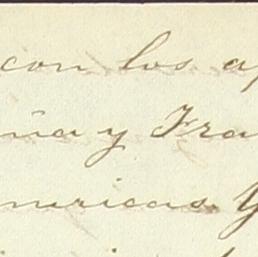 con los ap
ña y Fra
mericas. Y